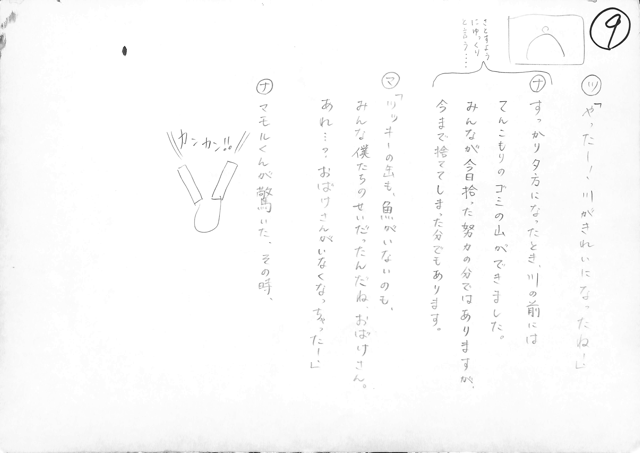 9
ツ「やったー!、川がきれいになったね!」
さとすように、ゆっくりと言う……
ナ すっかり夕方になったとき、川の前には
てんこもりのゴミの山ができました。
みんなが今日拾った努力の分ではありますが、
今まで捨ててしまった分でもあります。
マ「ツッキーの缶も、魚がいないのも、
みんな僕たちのせいだったんだね、おばけさん。
あれ…?おばけさんがいなくなっちゃったー!」
ナ マモルくんが驚いた、その時、
カンカン!!